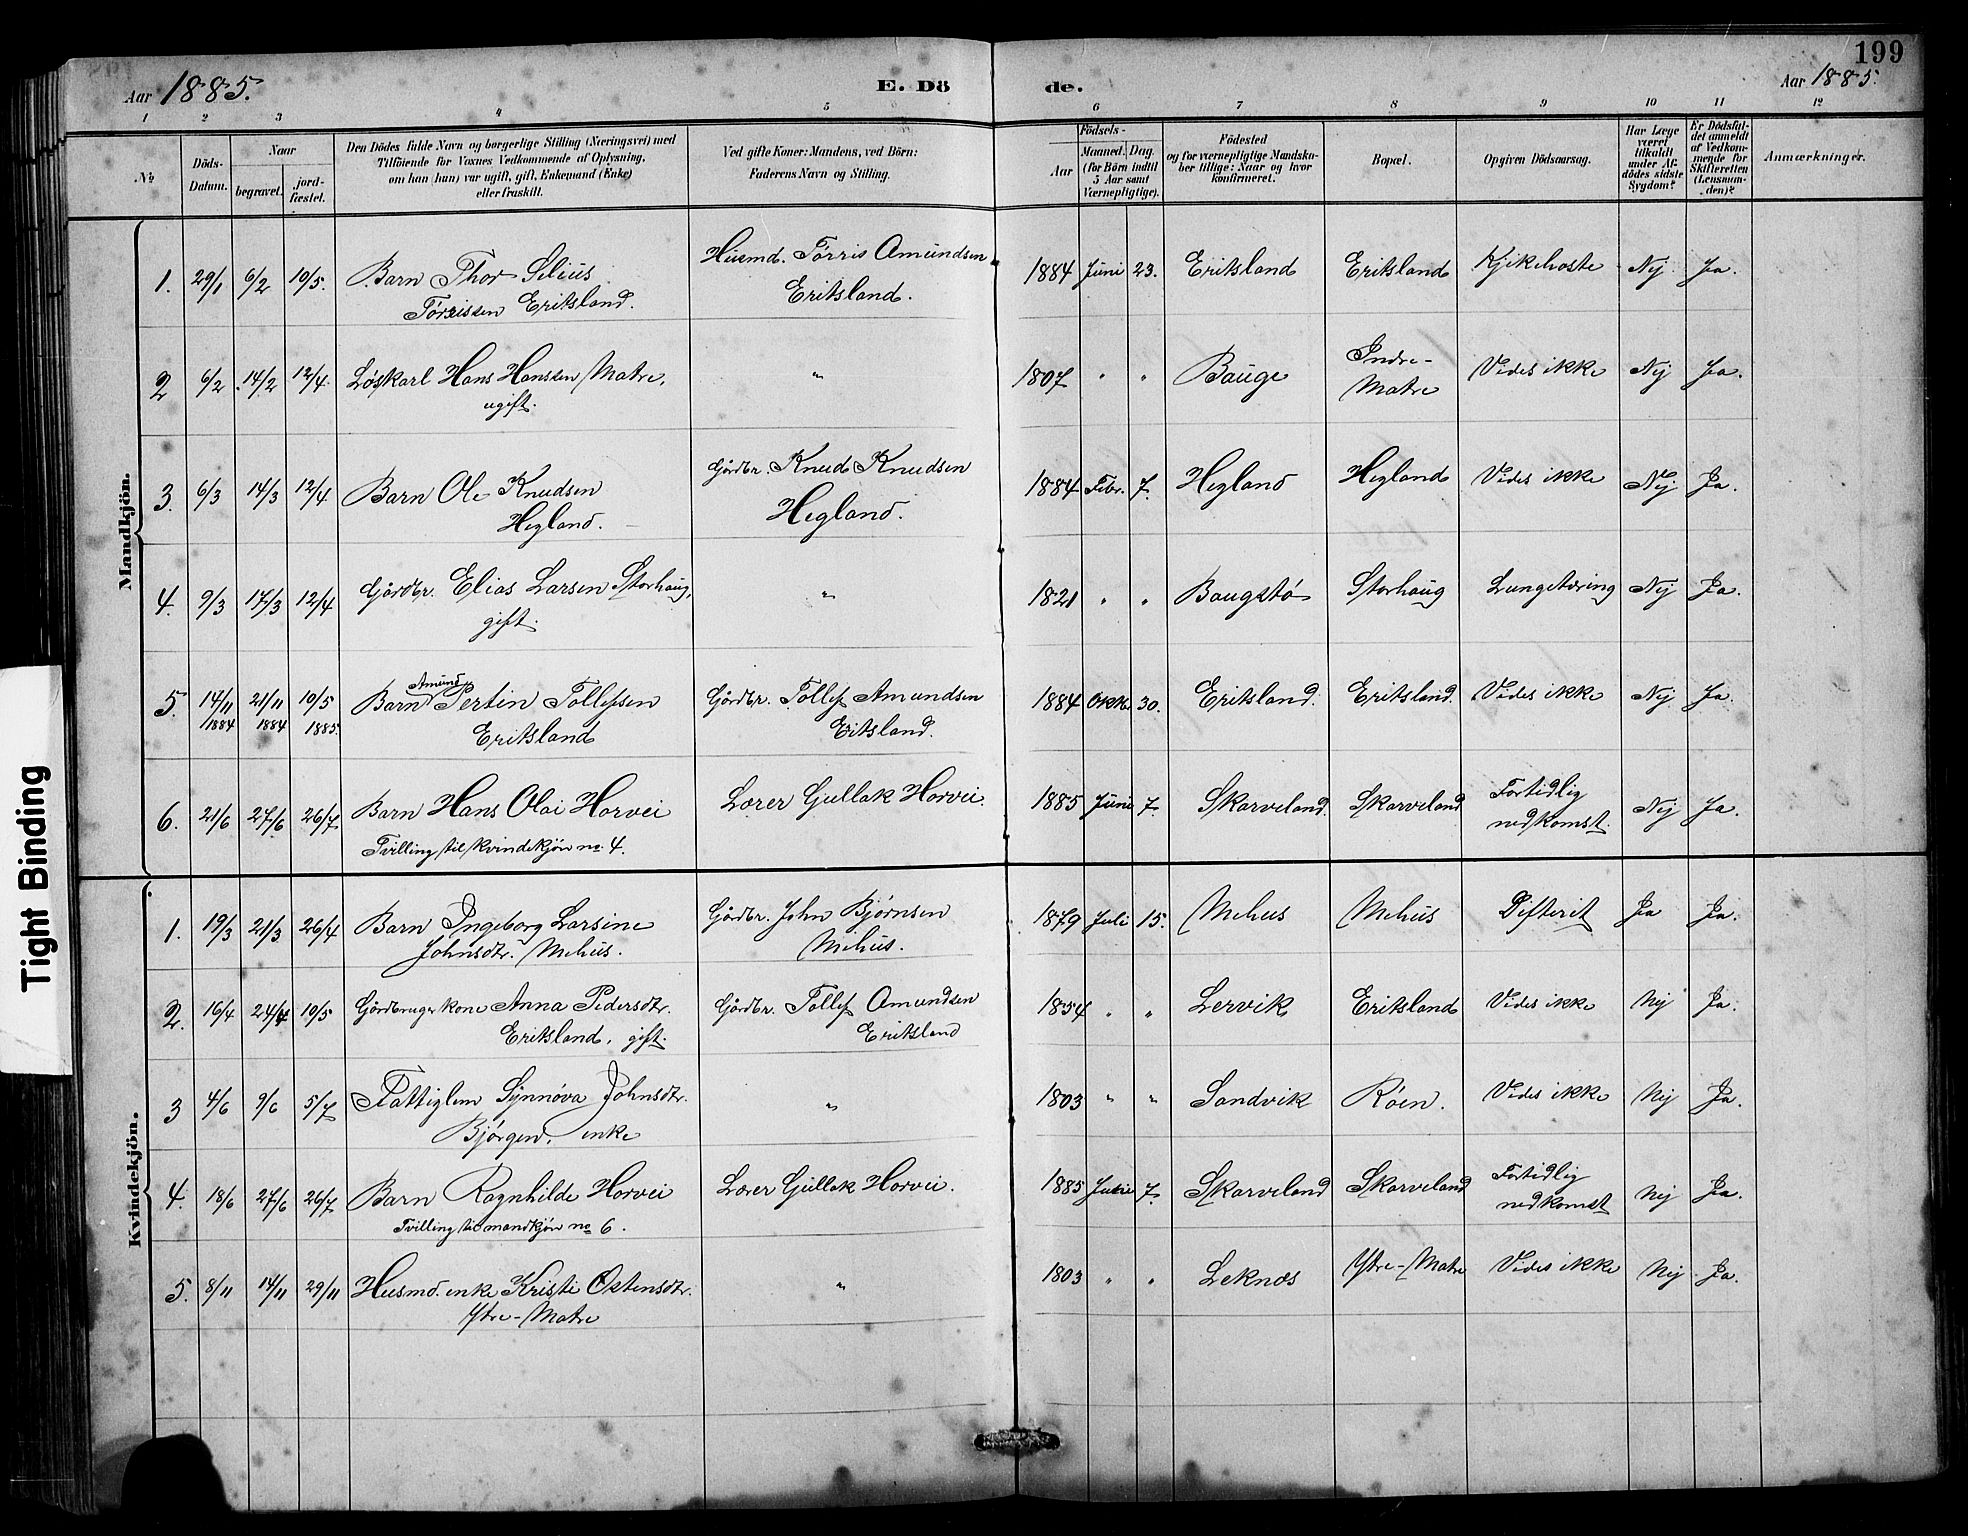 199
Aar 1885.
E. Dö
de.
Aar 1885.
1 2 3 4 5 6 7 8 9 10 11 12
No
Döds-Datum.
Naar
begravet.
jord-fæstet.
Den Dödes fulde Navn og borgerlige Stilling (Næringsvei) med
Tilföiende for Voxnes Vedkommende af Oplysning,
om han (hun) var ugift, gift, Enkemand (Enke)
eller fraskilt.
Ved gifte Koner: Mandens, ved Börn:
Faderens Navn og Stilling.
Födsels-
Aar
Maaned. Dag.
(for Börn indtil
5 Aar samt
Værnepligtige).
Födested
og for værnepligtige Mandska-
ber tillige: Naar og hvor
konfirmeret.
Bopæl.
Opgiven Dödsaarsag.
Har Læge
været
tilkaldt
under Af-
dödes sidste
Sygdom?
Er Dödsfal-
det anmeldt
af Vedkom-
mende for
Skifteretten
(Lensman-
den)?
Anmærkninger.
Mandkjön.
1. 29/1 6/2 10/5. Barn Thor Selius Husmd. Tørris Amundsen 1884 Juni 23. Eritsland Eritsland Kjikehoste Nej Ja.
Tørrissen Eritsland. Eritsland.
2 6/2 14/2 12/4. Løskarl Hans Hanssen Matre, " 1807 " " Bauge Indre- Vides ikke Nej Ja.
ugift. Matre
3. 6/3 14/3 12/4 Barn Ole Knudsen Gårdbr. Knud Knudsen 1884 Febr. 7. Hegland Hegland Vides ikke Nej Ja.
Hegland. Hegland.
4. 9/3 17/3 12/4 Gårdbr. Elias Larsen Storhaug, " 1821 " " Baugstø Storhaug Lungetæring Nej Ja.
gift.
5. 14/11 21/11 10/5 Barn Amund Pertin Tollefsen Gårdbr. Tollef Amundsen 1884 Oktb. 30. Eritsland. Eritsland. Vides ikke Nej Ja.
1884 1884 1885. Eritsland Eitsland.
6. 21/6 27/6 26/7 Barn Hans Olai Horvei Lærer Gullak Horvei. 1885 Juni 7. Skarveland. Skarveland Fortidlig Nej Ja.
Tvilling til kvindekjön no. 4. nedkomst.
Kvindekjön.
1. 19/3 21/3 26/4 Barn Ingeborg Larsine Gårdbr. John Bjørnsen 1879 Juli 15. Mehus Mehus Difterit Ja Ja.
Johnsdtr. Mehus. Mehus.
2. 16/4 24/4 19/5 Gårdbruger kone Anna Pedersdtr. Gårdbr. Tollef Amundsen 1854 " " Lervik Eritsland Vides ikke Nej Ja.
Eritsland, gift. Eritsland
3 4/6 9/6 5/7 Fattiglem Synnøva Johnsdtr. " 1803 " " Sandvik Røen. Vides ikke Nej Ja.
Bjørgen, enke
4. 18/6 27/6 26/7 Barn Ragnhilde Horvei Lærer Gullak Horvei. 1885 Juni 7. Skarveland Skarveland Fortidlig Nej Ja.
Tvilling til mandkjön no 6. nedkomst
5. 8/11 14/11 29/11 Husmd. enke Kristi Ostensdtr. " 1803 " " Leknæs Ytre-Matre Vides ikke Nej Ja.
Ytre-Matre
Tight Binding